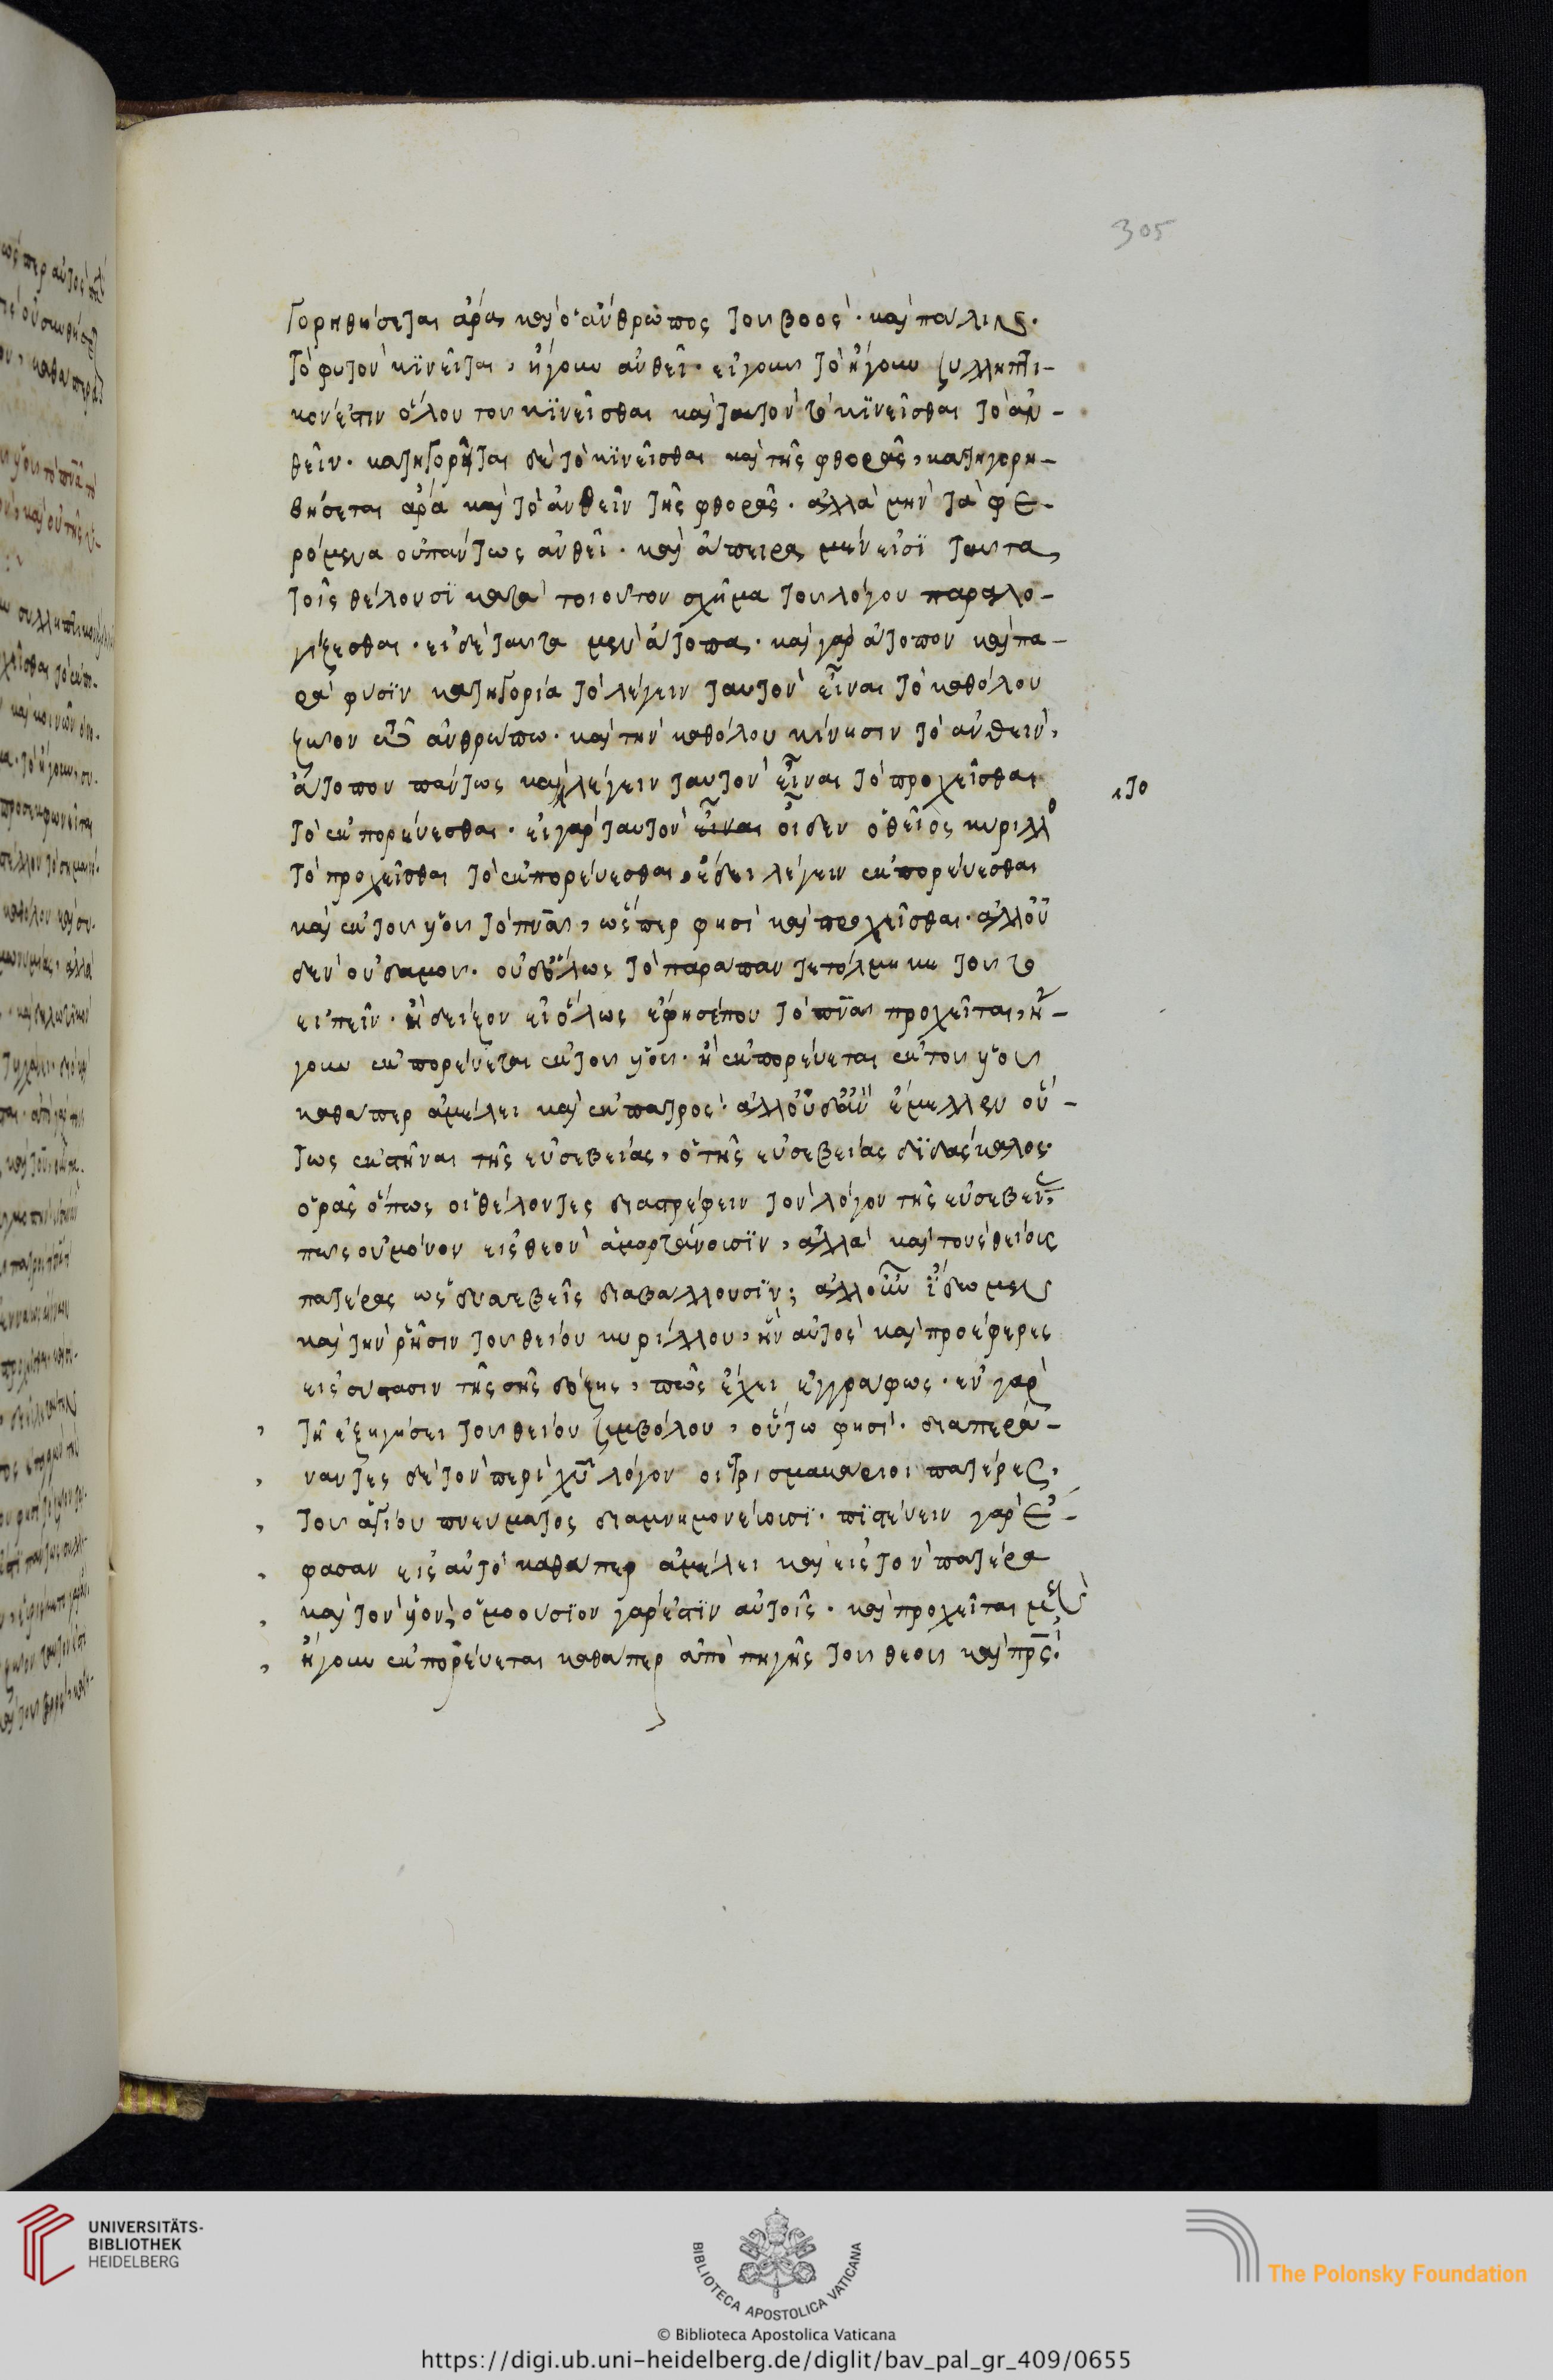 305
γορηθήσεται ἄρα καὶ ὁ ἄνθρωπος τοῦ βοός· καὶ πάλιν.
τὸ φυτὸν κϊνεῖται, ἤγουν ἀνθεῖ· εἰ γοῦν τὸ ἤγουν συλληπτι-
κόν ἐστιν ὅλου τοῦ κϊνεῖσθαι καὶ ταυτὸν τῶ κϊνεῖσθαι τὸ ἀν-
θεῖν· κατηγορεῖται δὲ τὸ κϊνεῖσθαι καὶ τῆς φθορᾶς, κατηγορη-
θήσεται ἄρα καὶ τὸ ἀνθεῖν τῆς φθορᾶς. ἀλλὰ μὴν τὰ φθει-
ρόμενα οὐ πάντως ἀνθεῖ· καὶ ἄπειρα μέν εἰσϊ ταῦτα,
τοῖς θέλουσϊ κατὰ τοιοῦτον σχῆμα τοῦ λόγου παραλο-
γίζεσθαι· εἰ δὲ ταῦτα μὲν ἄτοπα· καὶ γὰρ ἄτοπον καὶ πα-
ρὰ φύσϊν κατηγορία τὸ λέγειν ταυτὸν εἶναι τὸ καθόλου
ζῶον τῶ ἀνθρώπω· καὶ τὴν καθόλου κίνησιν τὸ ἀνθεῖν,
ἄτοπον πάντως καὶ λέγειν ταυτὸν εἶναι τὸ προχεῖσθαι
τὸ
τὸ ἐκπορεύεσθαι· εἰ γὰρ ταυτὸν εἶναι οἶδεν ὁ θεῖος κύριλλο
τὸ προχεῖσθαι τὸ ἐκπορεύεσθαι, ἔδει λέγειν ἐκπορεύεσθαι
καὶ ἐκ τοῦ υἱοῦ τὸ πνα, ὥσπερ φησὶ καὶ προχεῖσθαι· ἀλλ οὐ
δὲν οὐδαμοῦ· οὐδ ὅλως τὸ παράπαν τετόλμηκε τοῦτο
εἰπεῖν· ἢ δεῖξον εἰ ὅλως ἔφησέ που τὸ πνα προχεῖται, ἤ-
γουν ἐκπορεύεται ἐκ τοῦ υἱοῦ· ἢ ἐκπορεύεται ἐκ τοῦ υἱοῦ
καθάπερ ἀμέλει καὶ ἐκ πατρός· ἀλλ οὐδ ἂν ἔμελλεν οὕ-
τως ἐκστῆναι τῆς εὐσεβείας, ὁ τῆς εὐσεβείας δϊδάσκαλος.
ὁρᾶς ὅπως οἱ θέλοντες διαστρέφειν τὸν λόγον τῆς εὐσεβείας,
πῶς οὐ μόνον εἰς θεὸν ἁμαρτάνουσϊν, ἀλλὰ καὶ τοὺς θείους
πατέρας ὡς δυσσεβεῖς διαβάλλουσϊν; ἀλλ οὖν ἴδωμεν
καὶ τὴν ῥῆσιν τοῦ θείου κυρίλλου, ἣν αὐτὸς καὶ προέφερες
εἰς σύστασιν τῆς σῆς δόξης, πῶς ἔχει ἐγγράφως· ἐν γὰρ
τῆ ἐξηγήσει τοῦ θείου συμβόλου, οὕτω φησί· διαπερά-
ναντες δὲ τὸν περὶ χυ λόγον οἱ τρισμακάριοι πατέρες,
τοῦ ἁγίου πνεύματος διαμνημονεύουσϊ· πϊστεύειν γὰρ ἔ-
φασαν εἰς αὐτὸ καθάπερ ἀμέλει καὶ εἰς τὸν πατέρα
καὶ τὸν υἱόν, ὁμοούσϊον γάρ ἐστϊν αὐτοῖς· καὶ προχεῖται μὲν
ἤγουν ἐκπορεύεται καθάπερ ἀπὸ πηγῆς τοῦ θεοῦ καὶ πρς.
UNIVERSITÄTS-
BIBLIOTHEK
HEIDELBERG
BIBLIOTECA APOSTOLICA VATICANA
The Polonsky Foundation
© Biblioteca Apostolica Vaticana
https://digi.ub.uni-heidelberg.de/diglit/bav_pal_gr_409/0655